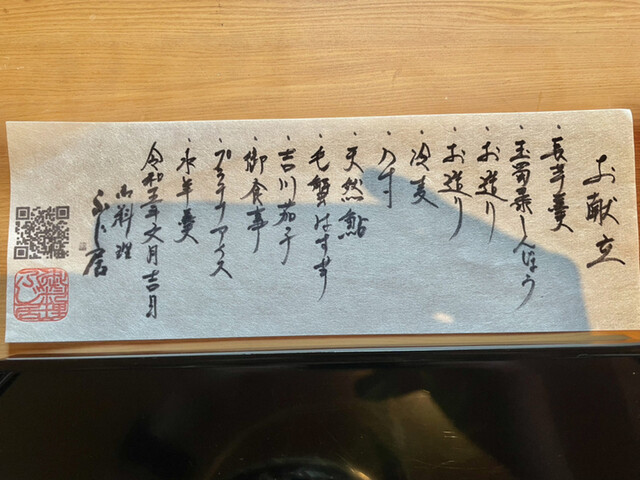 お献立
・長芋羹
・玉蜀黍しんじょう
・お造り
・お造り
・冷美
・八寸
・天然鮎
・毛蟹はす芋
・吉川茄子
・御食事
・プラチナアイス
・水羊羹
令和五年六月吉日
御料理
ふじ居